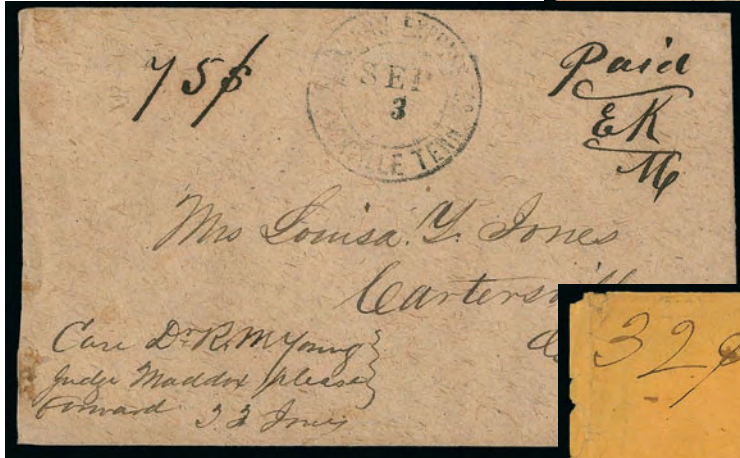 75¢
SEP
3
VILLE TENN
Paid
EK
M
Mrs Louisa Y. Jones
Cartersvill
Care Dr R. M Young
Judge Maddox please
Forward
32¢